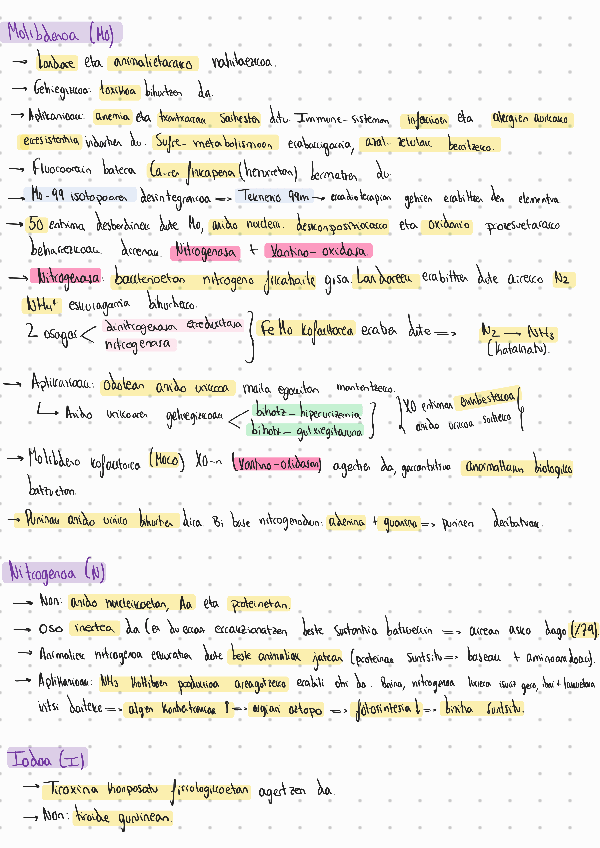 Molibdenoa (Mo)
→ Landare eta animalietarako nahitaezkoa.
→ Gehiegizkoa: toxikoa bihurtzen da.
→ Aplikazioak: anemia eta txantxarrak saihesten ditu. Immune-sisteman infekzioen eta alergien aurkako
erresistentzia indartzen du. Sufre-metabolismoan ezabaugarria, azal zelulak berritzeko.
→ Fluoroarekin batera Ca-ren finkapena (hezurretan) bermatzen du.
→ Mo-99 isotopoaren desintegrazioa => Teknezio 99m → erradioterapian gehien erabiltzen den elementua
→ 50 entzima desberdinek dute Mo, azido nukleiko deskonposiziorako eta oxidazio prozesuetarako
beharrezkoak direnak. Nitrogenasa + Xantino-oxidasa
→ Nitrogenasa: bakterioetan nitrogeno finkatzaile gisa. Landareek erabiltzen dute aireko N2
NH4+ eskuragarria bihurtzeko.
2 osagai < dinitrogenasa erreduktasa
nitrogenasa } FeMo kofaktorea erabiltzen dute => N2 → NH3
(katalizatu).
→ Aplikazioak: odolean azido urikoa maila egokitan mantentzeko.
↳ Azido urikoaren gehiegizkoak < bihotz-hiperurizemia
bihotz-gutxiegitasuna } {XO entzimak
azido urikoa sortzeko}
→ Molibdeno kofaktorea (Moco) XO-n (Xantino-oxidasan) agertzen da, garrantzitsua anormaltasun biologiko
batzuetan.
→ Purinak azido uriko bihurtzen dira. Bi base nitrogenodun: adenina + guanina => purinen deribatuak.
Nitrogenoa (N)
→ Non: azido nukleikoetan, Aa eta proteinetan.
→ Oso inertea da (ez du erraz erreakzionatzen beste sustantzia batzuekin => airean asko dago (%79).
→ Animaliek nitrogenoa eskuratzen dute beste animaliak jatean (proteinak suntsitu => baseak + aminoazidoak).
→ Aplikazioak: NH3 produkzioa areagotzeko erabili ohi da. Baina, nitrogenoa
iritsi daiteke => algen kontzentrazioa ↑ => argiari oztopo => fotosintesia ↓ => bizitza suntsitu.
Iodoa (I)
→ Tiroxina konposatu fisiologikoetan agertzen da.
→ Non: tiroide guruinean.